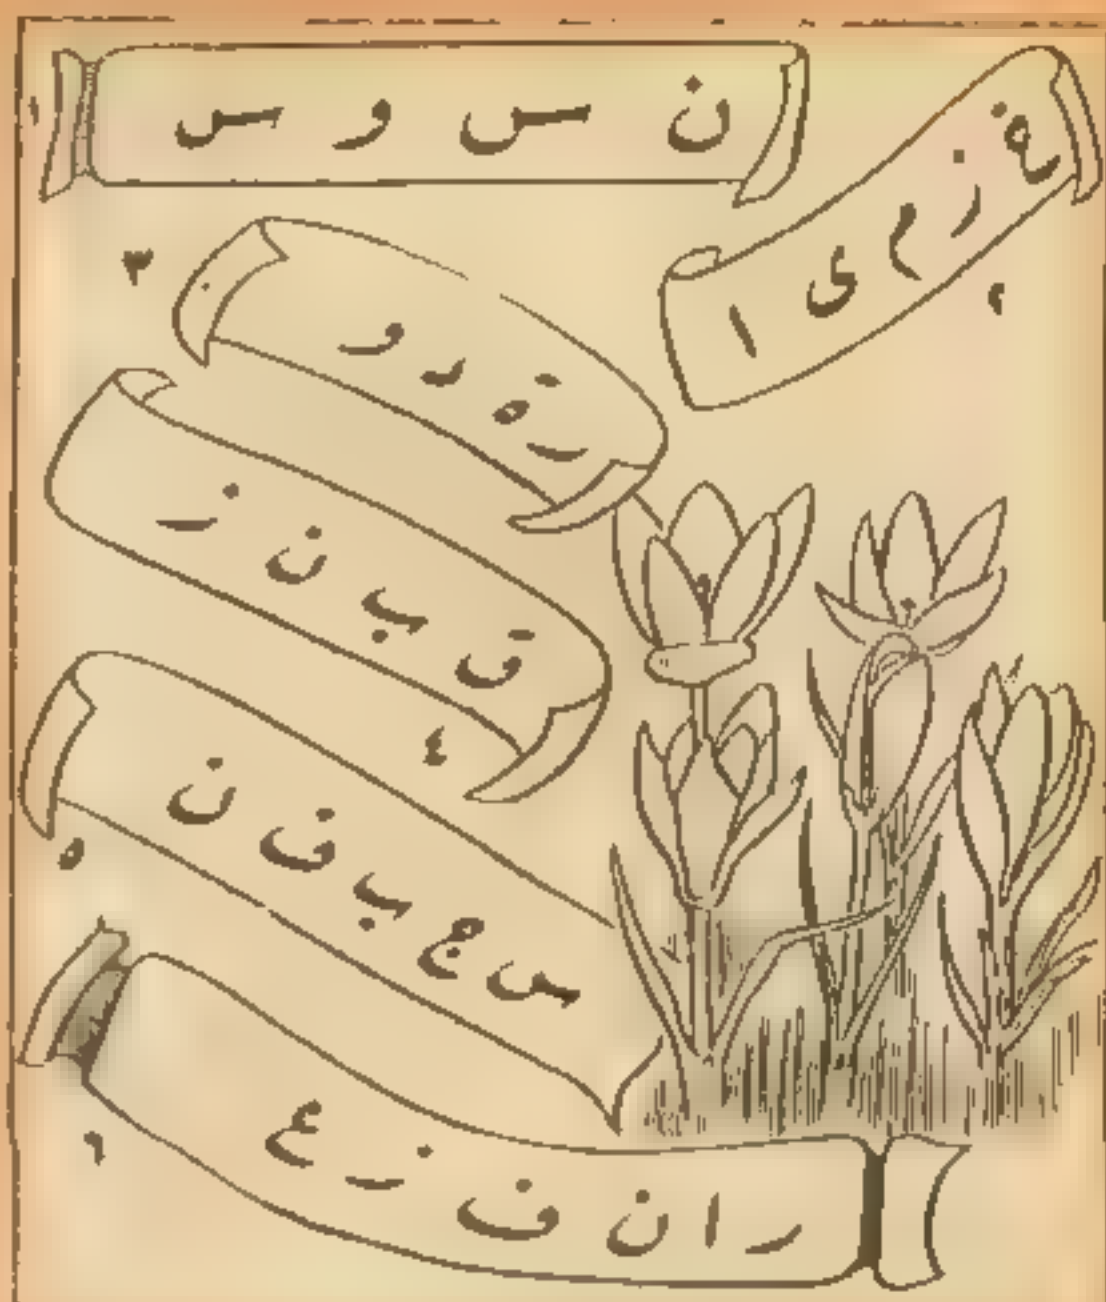 ١ ن س و س
٢ خ ز م ى ا
٣ ر ة د و
٤ ق ب ن ز
٥ س ج ب ف ن
٦ ر ا ن ف ز ع